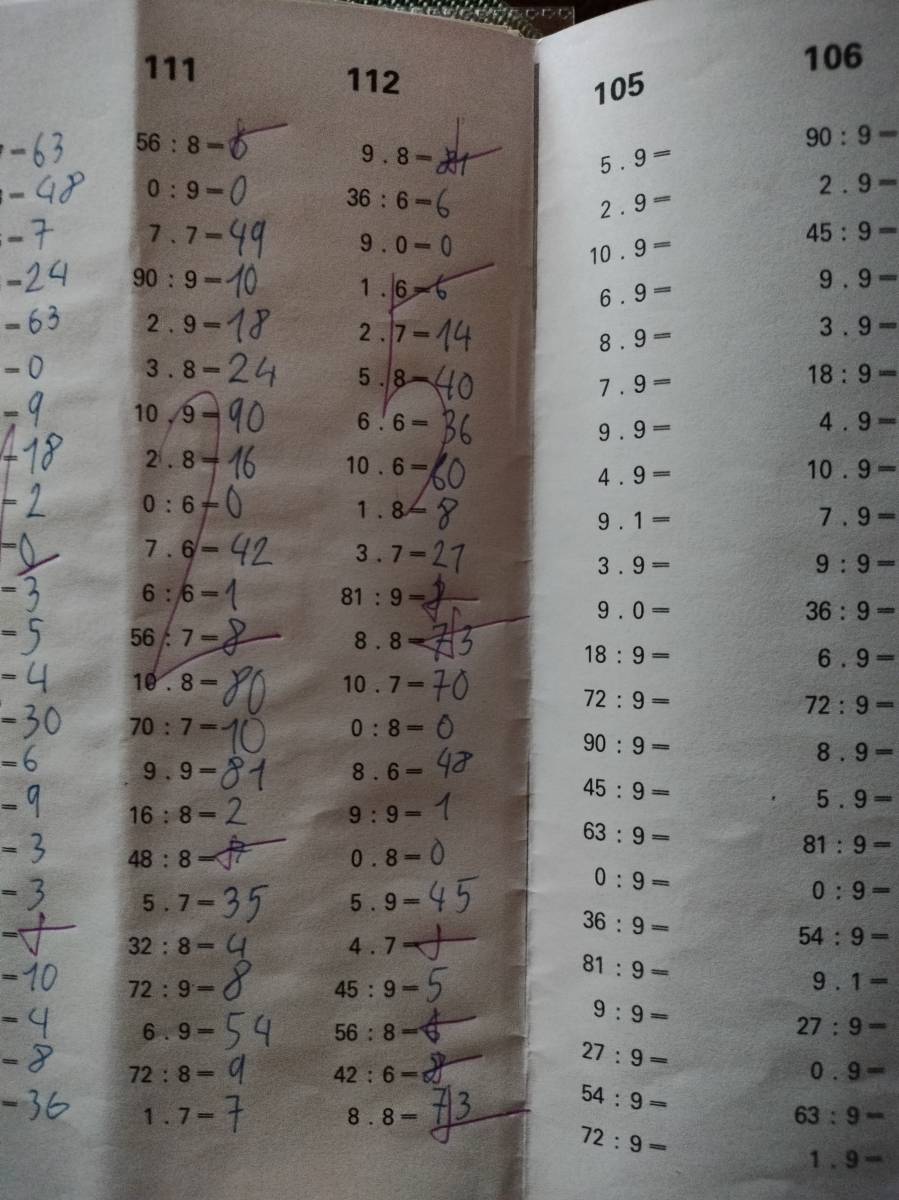 111
56 : 8 = 6
0 : 9 = 0
7 . 7 = 49
90 : 9 = 10
2 . 9 = 18
3 . 8 = 24
10 . 9 = 90
2 . 8 = 16
0 : 6 = 0
7 . 6 = 42
6 : 6 = 1
56 : 7 = 8
10 . 8 = 80
70 : 7 = 10
9 . 9 = 81
16 : 8 = 2
48 : 8 =
5 . 7 = 35
32 : 8 = 4
72 : 9 = 8
6 . 9 = 54
72 : 8 = 9
1 . 7 = 7
112
9 . 8 = 81
36 : 6 = 6
9 . 0 = 0
1 . 6 = 6
2 . 7 = 14
5 . 8 = 40
6 . 6 = 36
10 . 6 = 60
1 . 8 = 8
3 . 7 = 21
81 : 9 =
8 . 8 = 73
10 . 7 = 70
0 : 8 = 0
8 . 6 = 48
9 : 9 = 1
0 . 8 = 0
5 . 9 = 45
4 . 7 =
45 : 9 = 5
56 : 8 = 6
42 : 6 = 8
8 . 8 = 73
= 63
= 48
= 7
= 24
= 63
= 0
= 9
= 18
= 2
= 0
= 3
= 5
= 4
= 30
= 6
= 9
= 3
= 3
=
= 10
= 4
= 8
= 36
105
5 . 9 =
2 . 9 =
10 . 9 =
6 . 9 =
8 . 9 =
7 . 9 =
9 . 9 =
4 . 9 =
9 . 1 =
3 . 9 =
9 . 0 =
18 : 9 =
72 : 9 =
90 : 9 =
45 : 9 =
63 : 9 =
0 : 9 =
36 : 9 =
81 : 9 =
9 : 9 =
27 : 9 =
54 : 9 =
72 : 9 =
106
90 : 9 =
2 . 9 =
45 : 9 =
9 . 9 =
3 . 9 =
18 : 9 =
4 . 9 =
10 . 9 =
7 . 9 =
9 : 9 =
36 : 9 =
6 . 9 =
72 : 9 =
8 . 9 =
5 . 9 =
81 : 9 =
0 : 9 =
54 : 9 =
9 . 1 =
27 : 9 =
0 . 9 =
63 : 9 =
1 . 9 =